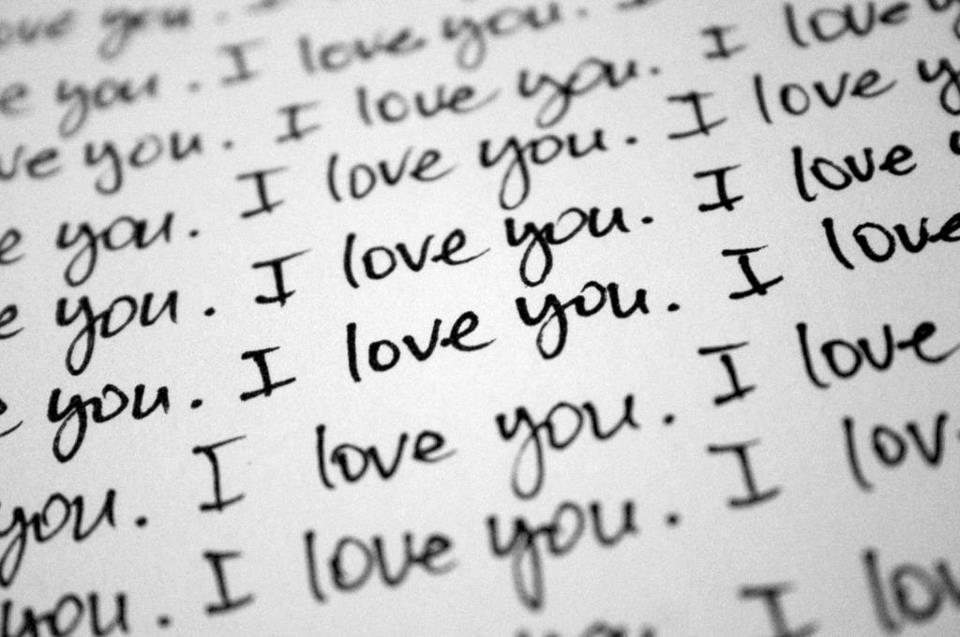 ove you.
e you. I love you.
ve you. I love you. I love
e you. I love you. I love y
e you. I love you. I love
you. I love you. I love
you. I love you. I love
you. I love you. I lov
I lov